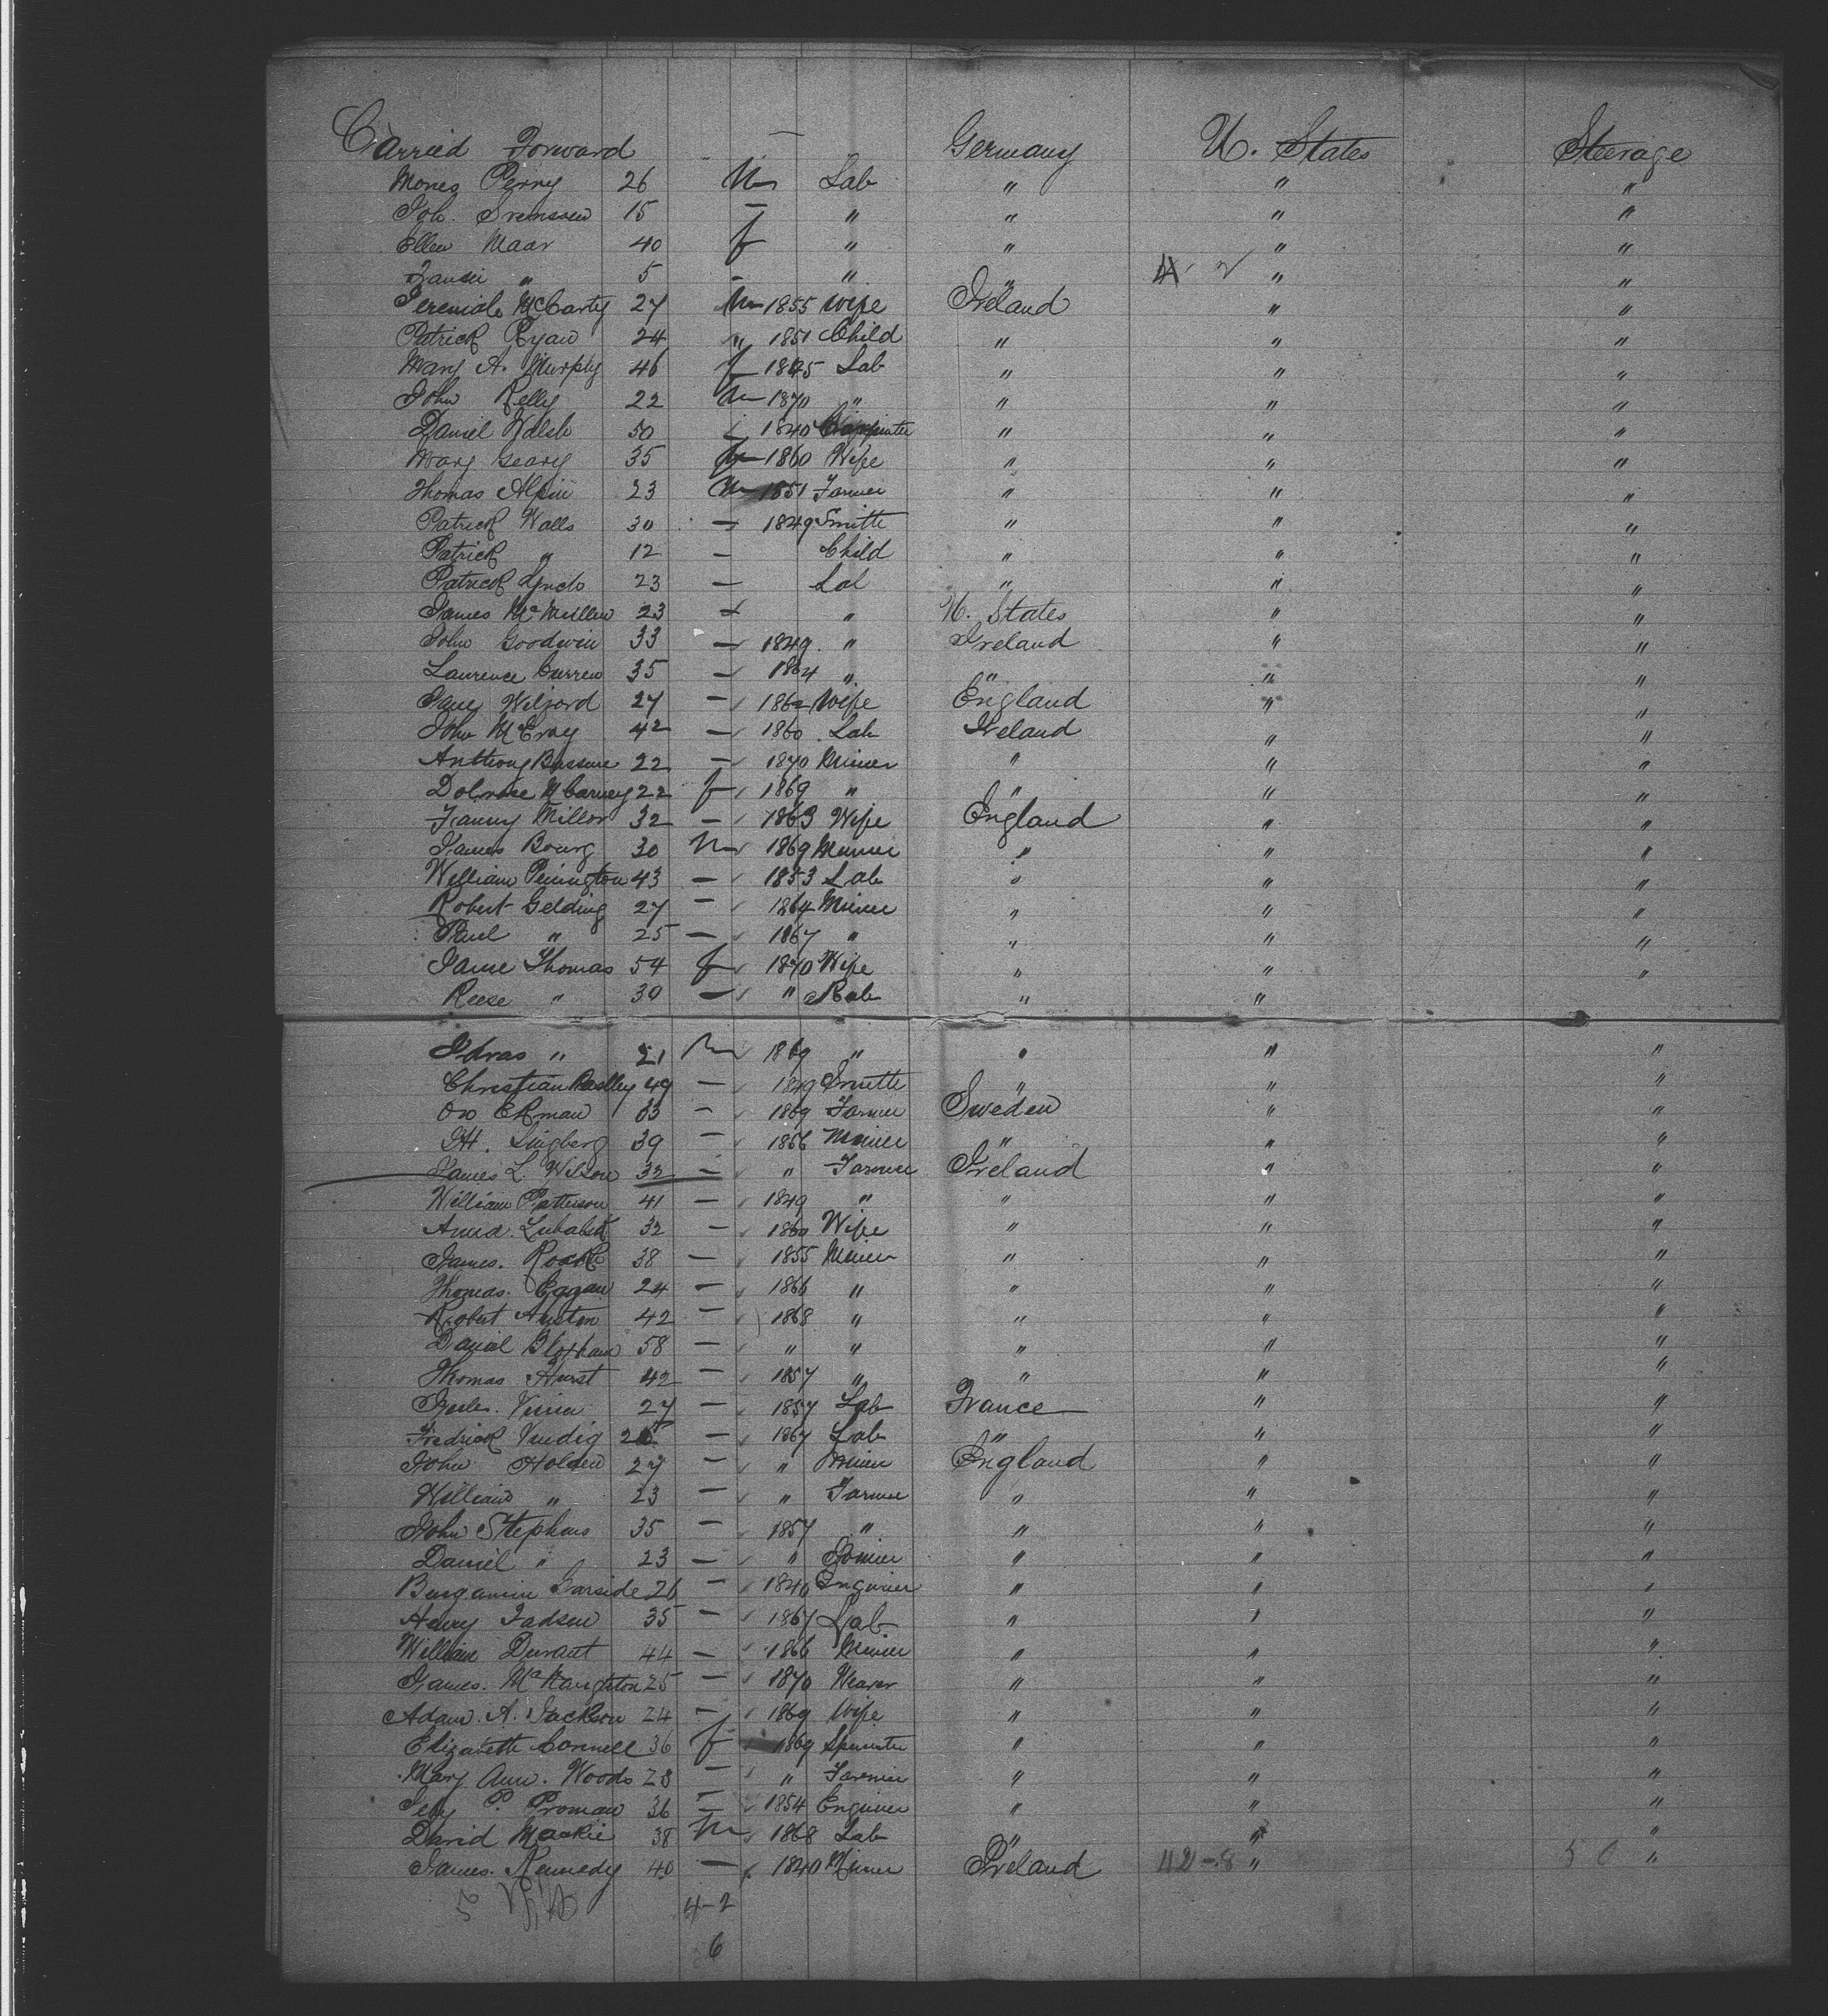 Carried Forward — Germany U. States Steerage
Mones Perry 26 M Lab " " "
Joh. Svenssen 15 — " " " "
Ellen Maar 40 f " " " "
" 5 — " " "
Jeremiah McCarty 27 M 1855 Wife Ireland " "
Patrick Ryan 24 " 1851 Child " " "
Mary A. Murphy 46 f 1845 Lab " " "
John Kelly 22 M 1870 " " " "
Daniel Walsh 50 1840 Carpenter " " "
Mary Geary 35 f 1860 Wife " " "
Thomas Alpin 23 M 1851 Farmer " " "
Patrick Walls 30 — 1849 Smith " " "
Patrick " 12 — Child " " "
Patrick Lynch 23 — Lab " " "
James McMullen 23 — " U. States " "
John Goodwin 33 — 1849 " Ireland " "
Laurence Curren 35 — 1864 " " " "
Jane Wilford 27 — 1862 Wife England " "
John McEvoy 42 — 1860 Lab Ireland " "
Anthony 22 — 1870 Miner " " "
22 f 1869 " " " "
Fanny Millor 32 — 1863 Wife England " "
James Bourg 30 M 1869 Miner " " "
William Pinington 43 — 1853 Lab " " "
Robert Gelding 27 — 1864 Miner " " "
Paul " 25 — 1867 " " " "
Jane Thomas 54 f 1870 Wife " " "
Reese " 30 — " Lab " "
Idras " 21 M 1869 " " " "
Christian 49 — 1849 Smith " " "
Ekman 33 — 1869 Farmer Sweden " "
Lingberg 39 — 1856 Miner " " "
James L. Wilson 32 — " Farmer Ireland " "
William Patterson 41 — 1849 " " " "
32 — 1860 Wife " " "
James. Roark 38 — 1855 Miner " " "
Thomas. Eagan 24 — 1866 " " " "
Robert Auston 42 — 1868 " " " "
Daniel Bloxham 58 — " " " " "
Thomas Hurst 42 — 1857 " " " "
27 — 1857 Lab France " "
Fredrick Vindig — 1867 Lab " " "
John Holden 27 — " Miner England " "
William " 23 — " Farmer " " "
John Stephens 35 — 1857 " " " "
Daniel " 23 — " Joiner " " "
Bengamin Garside 26 — 1840 Enginier " " "
Henry Jadsen 35 — 1867 Lab " " "
William Durant 44 — 1866 Miner " " "
James. McNaughton 25 — 1870 Weaver " " "
Adam. A. Jackson 24 — 1869 Wife " " "
Elizabeth Connell 36 f 1869 Spinster " " "
Mary Ann. Woods 28 — " Farmer " " "
P. Proman 36 — 1854 Enginer " " "
David Mackie 38 M 1868 Lab " " "
James. Kennedy 40 — 1840 Miner Ireland 42-8 " 50 "
4-2
6